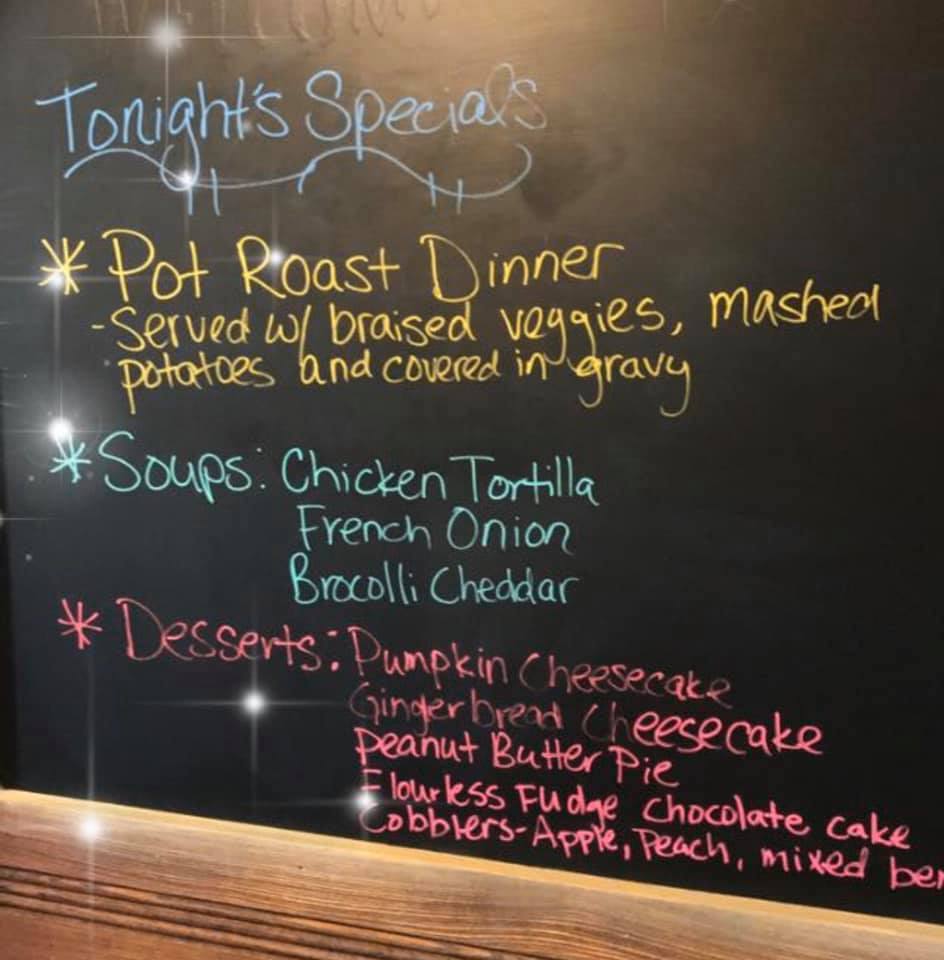 Tonight's Specials
* Pot Roast Dinner
- Served w/ braised veggies, mashed
potatoes and covered in gravy
* Soups: Chicken Tortilla
French Onion
Brocolli Cheddar
* Desserts: Pumpkin Cheesecake
Gingerbread Cheesecake
Peanut Butter Pie
Flourless Fudge Chocolate cake
Cobblers - Apple, Peach, mixed